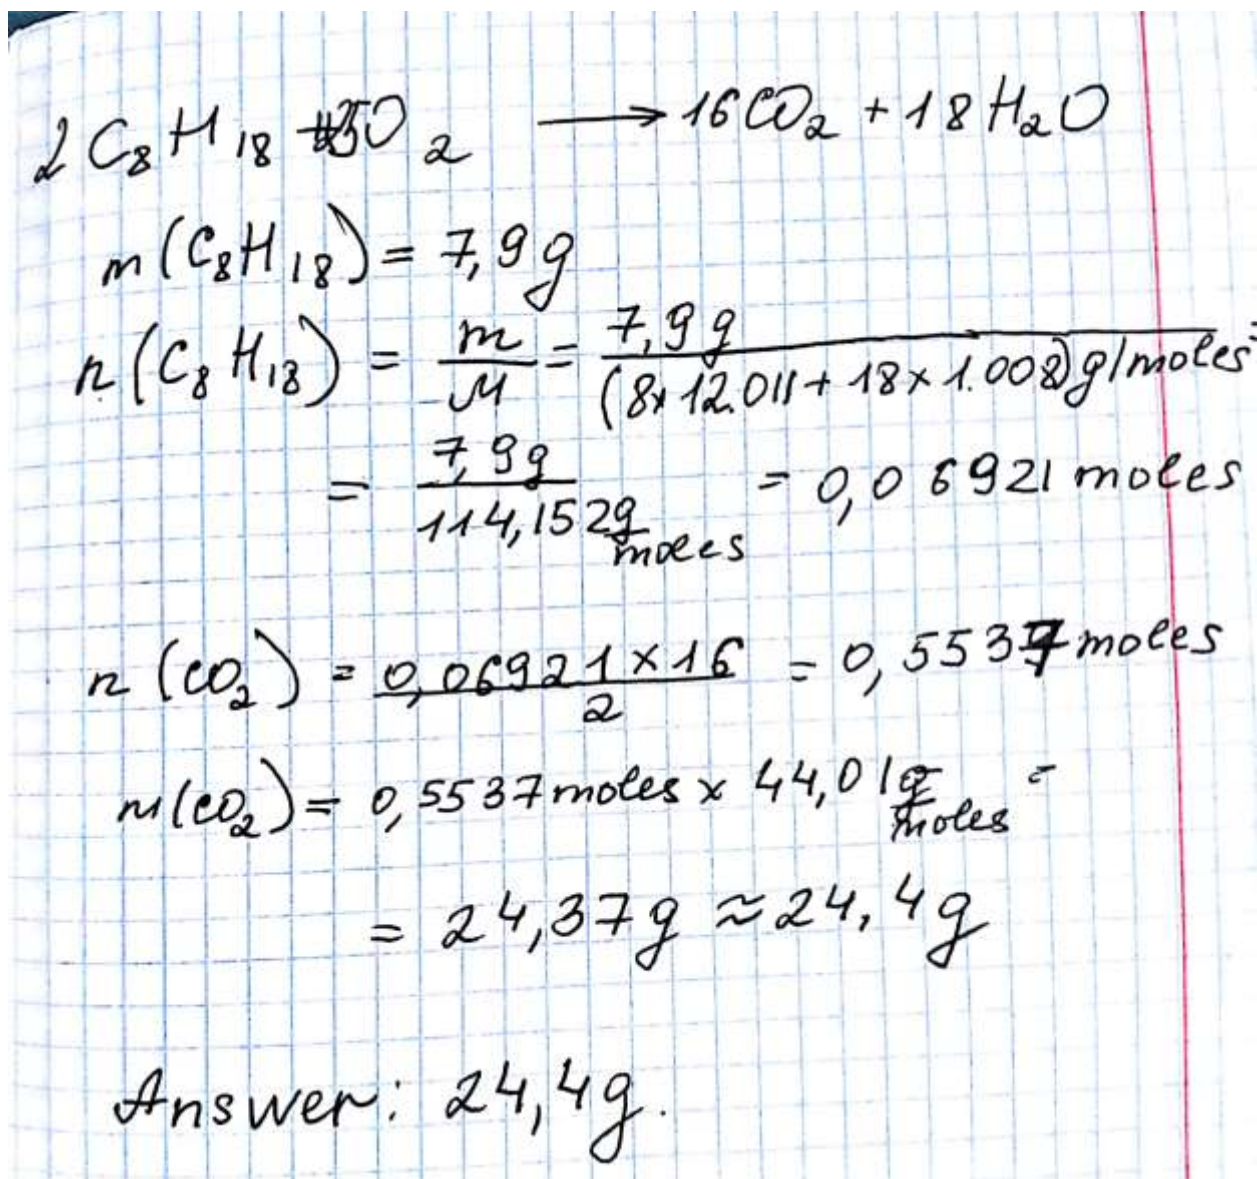 2 C₈H₁₈ + 25O₂ → 16CO₂ + 18H₂O
m(C₈H₁₈) = 7,9g
n(C₈H₁₈) = m/M = 7,9g/(8×12.011 + 18×1.008)g/moles =
= 7,9g/114,152g/moles = 0,06921 moles
n(CO₂) = 0,06921×16/2 = 0,5537 moles
m(CO₂) = 0,5537 moles × 44,01g/moles =
= 24,37g ≈ 24,4g
Answer: 24,4g.